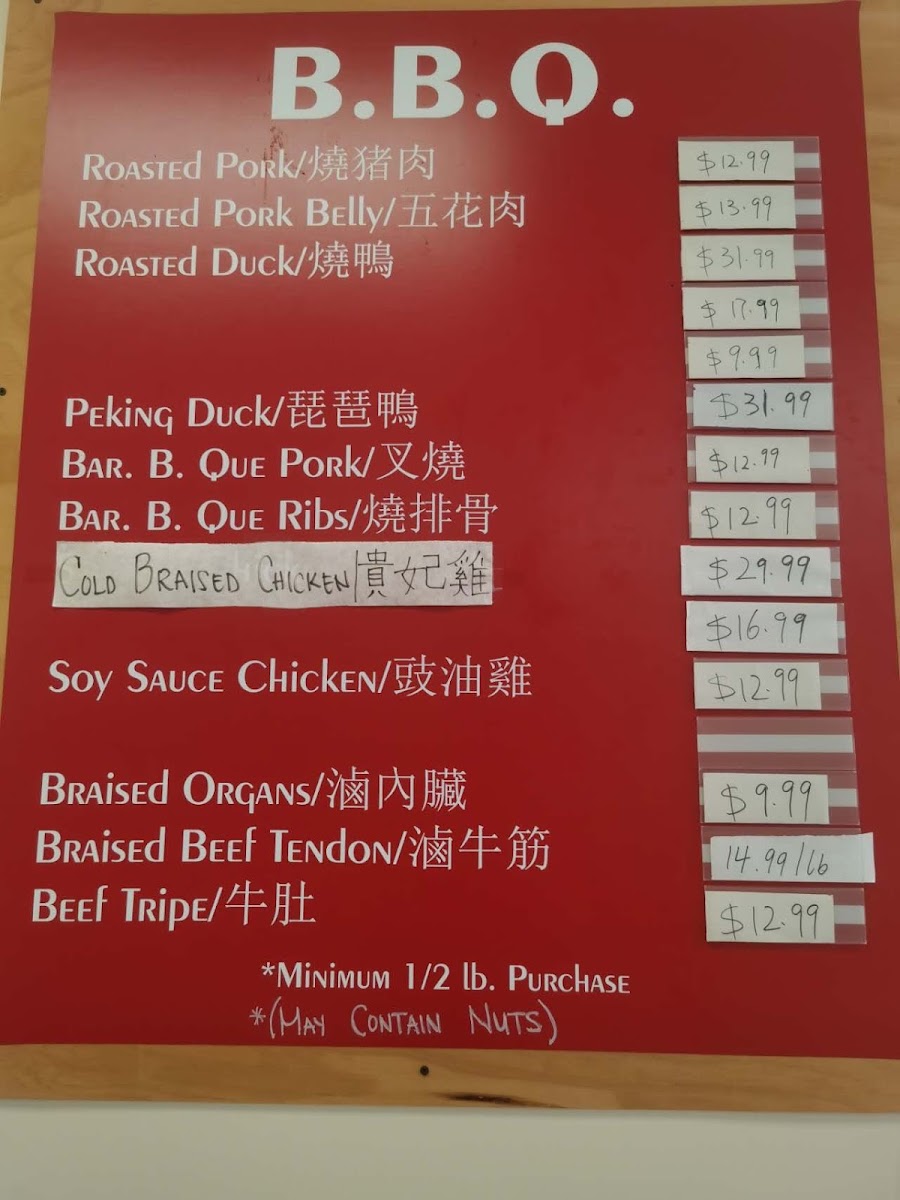 B.B.Q.
Roasted Pork/燒猪肉 $12.99
Roasted Pork Belly/五花肉 $13.99
Roasted Duck/燒鴨 $31.99
$17.99
$9.99
Peking Duck/琵琶鴨 $31.99
Bar. B. Que Pork/叉燒 $12.99
Bar. B. Que Ribs/燒排骨 $12.99
Cold Braised Chicken/貴妃雞 $29.99
$16.99
Soy Sauce Chicken/豉油雞 $12.99
Braised Organs/滷內臟 $9.99
Braised Beef Tendon/滷牛筋 14.99/lb
Beef Tripe/牛肚 $12.99
*Minimum 1/2 lb. Purchase
*(May Contain Nuts)